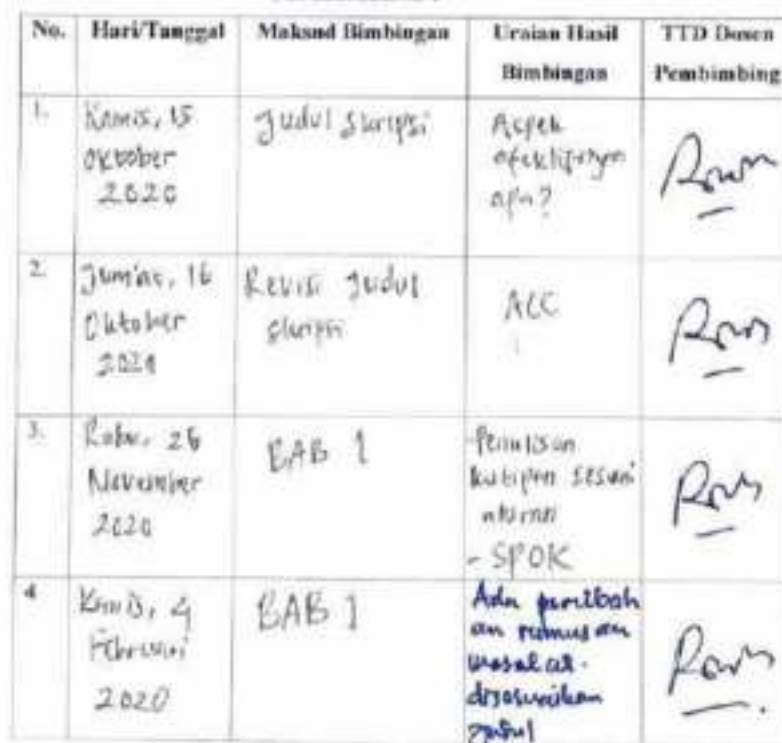 No. Hari/Tanggal Maksud Bimbingan Uraian Hasil Bimbingan TTD Dosen Pembimbing
1. Kamis, 15 Oktober 2020
Judul Skripsi
Aspek
apa?
2. Jum'at, 16 Oktober
Revisi Judul
Skripsi
ACC
3. Rabu, 26
November
2020
BAB 1
-Penulisan
kutipan sesuai
aturan
- SPOK
4 Kamis, 4
Februari
2020
BAB 1
Ada perubah
an rumusan
masalah.
disesuaikan
judul